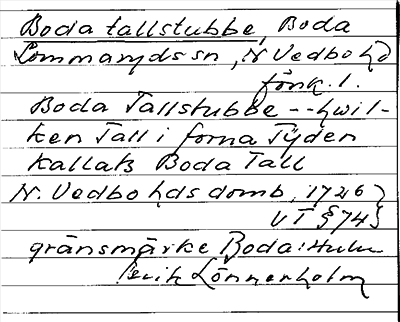 Boda tallstubbe, Boda
Lommarydssn, N Vedbo hd
förk. 1.
Boda Tallstubbe -- hwil-
ken Tall i forna Tijden
kallats Boda Tall
N. Vedbo hds domb, 1726
VT § 74
gränsmärke Boda:Hulu
Lönnerholm